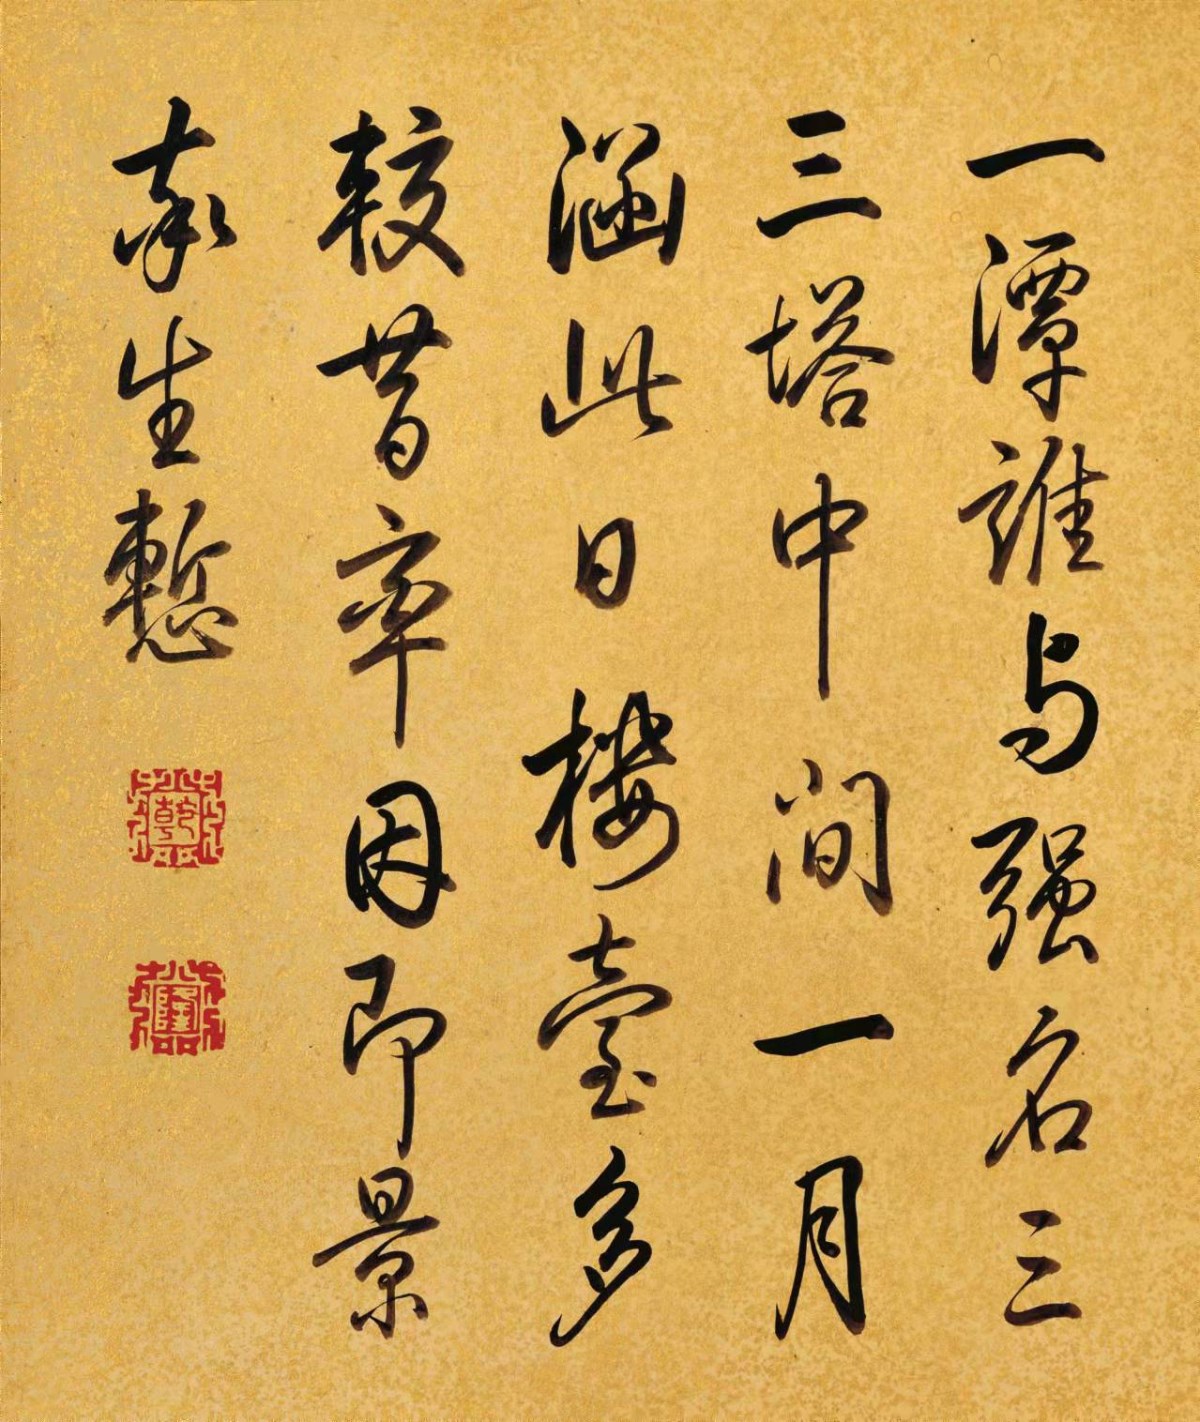 一潭誰与强名三
三塔中間一月
涵此日樓臺多
較昔率因即景
永生慙
乾
隆